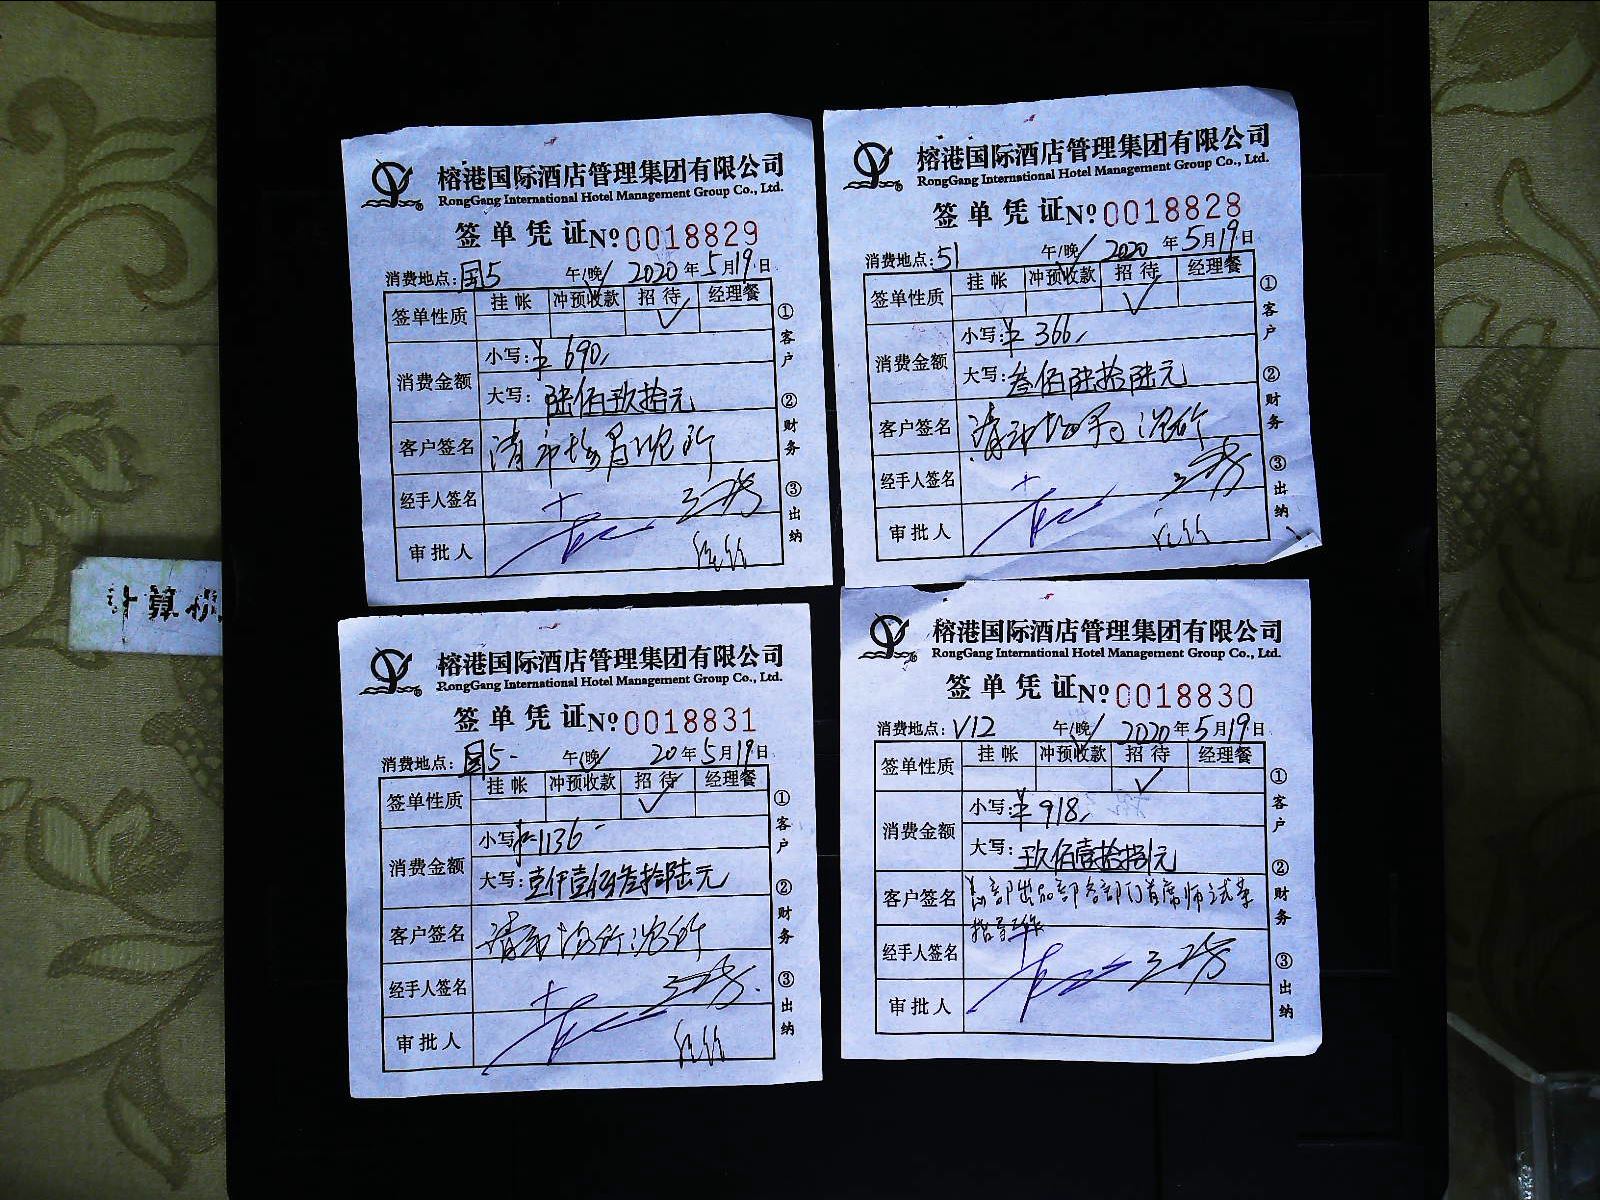 榕港国际酒店管理集团有限公司
RongGang International Hotel Management Group Co., Ltd.
签单凭证 No 0018829
消费地点: 国5 午/晚 2020年5月19日
签单性质 挂帐 冲预收款 招待 经理餐
✓
消费金额
小写: ¥690
大写: 陆佰玖拾元
客户签名
经手人签名
审批人
①客户 ②财务 ③出纳
榕港国际酒店管理集团有限公司
RongGang International Hotel Management Group Co., Ltd.
签单凭证 No 0018828
消费地点: 51 午/晚 2020年5月19日
签单性质 挂帐 冲预收款 招待 经理餐
✓
消费金额
小写: ¥366
大写: 叁佰陆拾陆元
客户签名
经手人签名
审批人
①客户 ②财务 ③出纳
榕港国际酒店管理集团有限公司
RongGang International Hotel Management Group Co., Ltd.
签单凭证 No 0018831
消费地点: 国5 午/晚 20年5月19日
签单性质 挂帐 冲预收款 招待 经理餐
✓
消费金额
小写: 1136
大写: 壹仟壹佰叁拾陆元
客户签名
经手人签名
审批人
①客户 ②财务 ③出纳
榕港国际酒店管理集团有限公司
RongGang International Hotel Management Group Co., Ltd.
签单凭证 No 0018830
消费地点: V12 午/晚 2020年5月19日
签单性质 挂帐 冲预收款 招待 经理餐
✓
消费金额
小写: ¥918
大写: 玖佰壹拾捌元
客户签名 总部出品部各部门首席师试菜
指导工作
经手人签名
审批人
①客户 ②财务 ③出纳
计算机